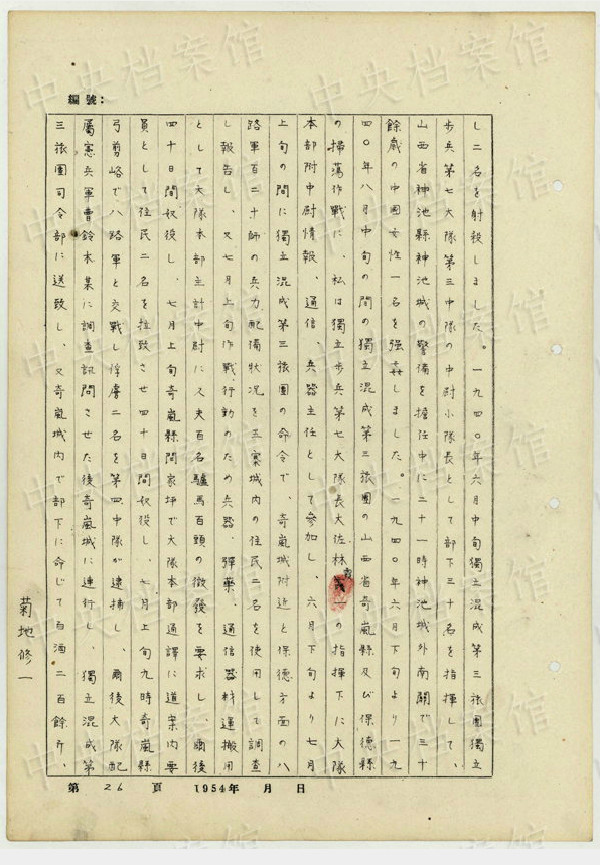 編號:
し二名を射殺しました。一九四〇年六月中旬獨立混成第三旅團獨立
歩兵第七大隊第三中隊の中尉小隊長として部下三十名を指揮して、
山西省神池縣神池城の警備を擔任中に二十一時神池城外南關で三十
餘歳の中國女性一名を強姦しました。一九四〇年六月下旬より一九
四〇年八月中旬の間の獨立混成第三旅團の山西省奇嵐縣及び保德縣
の掃蕩作戰に、私は獨立歩兵第七大隊長大佐林 一の指揮下に大隊
本部附中尉情報、通信、兵器主任として參加し、六月下旬より七月
上旬の間に獨立混成第三旅團の命令で、奇嵐城附近と保德方面の八
路軍百二十師の兵力配備狀況を五寨城内の住民二名を使用して調査
し報告し、又七月上旬作戰行動のための兵器、彈藥、通信器材運搬用
として大隊本部主計中尉に人夫百名驢馬百頭の徵發を要求し、爾後
四十日間奴役し、七月上旬奇嵐縣閻家坪で大隊本部通譯に道案内要
員として住民二名を拉致させ四十日間奴役し、七月上旬九時奇嵐縣
弓剪峪で八路軍と交戰し俘虜二名を第四中隊が逮捕し、爾後大隊配
屬憲兵軍曹鈴木某に調查訊問させた後奇嵐城に連行し、獨立混成第
三旅團司令部に送致し、又奇嵐城内で部下に命じて白酒二百餘斤、
菊地修一
第 26 頁 1954年 月 日
中央档案馆